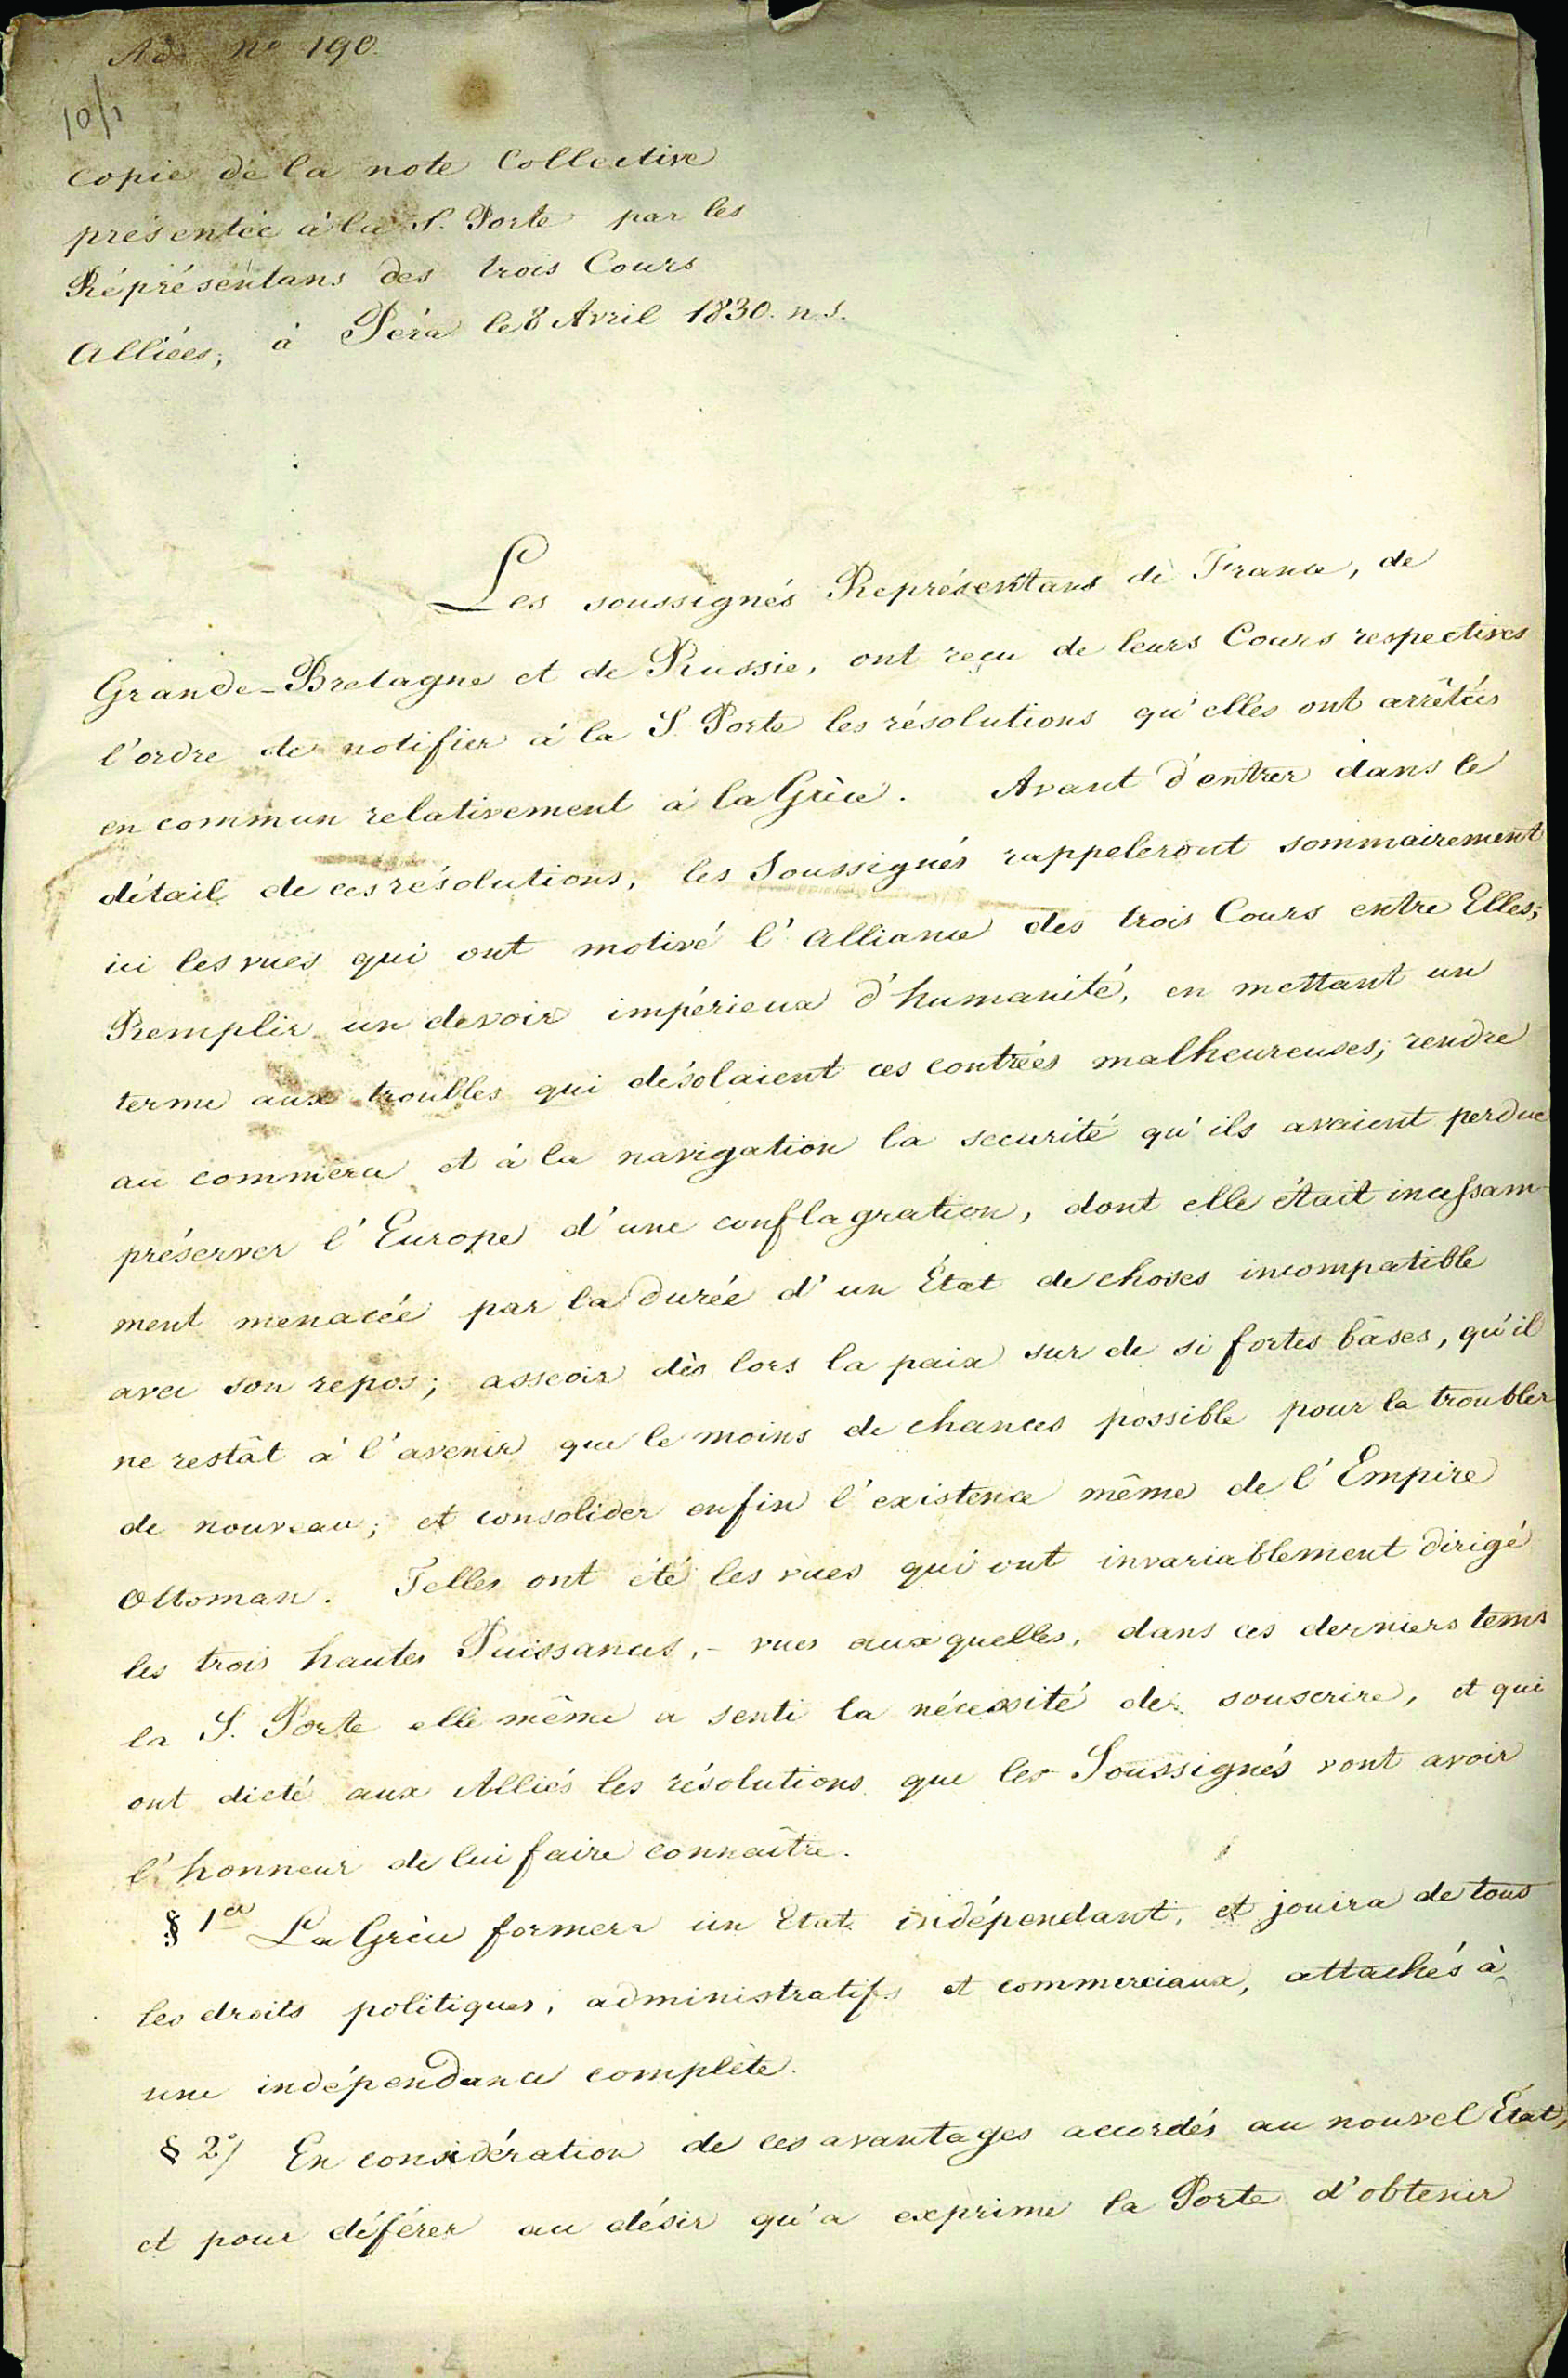 Ad no 190.
10/1
Copie de la note Collective
présentée à la S. Porte par les
Réprésentans des trois Cours
Alliées, à Péra le 8 Avril 1830. n.s.
Les soussignés Représentans de France, de
Grande-Bretagne et de Russie, ont reçu de leurs Cours respectives
l'ordre de notifier à la S. Porte les résolutions qu'elles ont arrêtées
en commun relativement à la Grèce. Avant d'entrer dans le
détail de ces résolutions, les Soussignés rappeleront sommairement
ici les vues qui ont motivé l'Alliance des trois Cours entre Elles;
Remplir un devoir impérieux d'humanité, en mettant un
terme aux troubles qui désolaient ces contrées malheureuses; rendre
au commerce et à la navigation la securité qu'ils avaient perdue
préserver l'Europe d'une conflagration, dont elle était incessam-
ment menacée par la durée d'un État de choses incompatible
avec son repos; asseoir dès lors la paix sur de si fortes bâses, qu'il
ne restât à l'avenir que le moins de chances possible pour la troubler
de nouveau; et consolider enfin l'existence même de l'Empire
Ottoman. Telles ont été les vues qui ont invariablement dirigé
les trois hautes Puissances, - vues auxquelles, dans ces derniers tems
la S. Porte elle même a senti la nécessité de souscrire, et qui
ont dicté aux Alliés les résolutions que les Soussignés vont avoir
l'honneur de lui faire connaître.
§ 1er La Grèce formera un Etat indépendant, et jouira de tous
les droits politiques, administratifs et commerciaux, attachés à
une indépendance complète.
§ 2°/ En considération de ces avantages accordés au nouvel État,
et pour déférer au désir qu'a exprimé la Porte d'obtenir